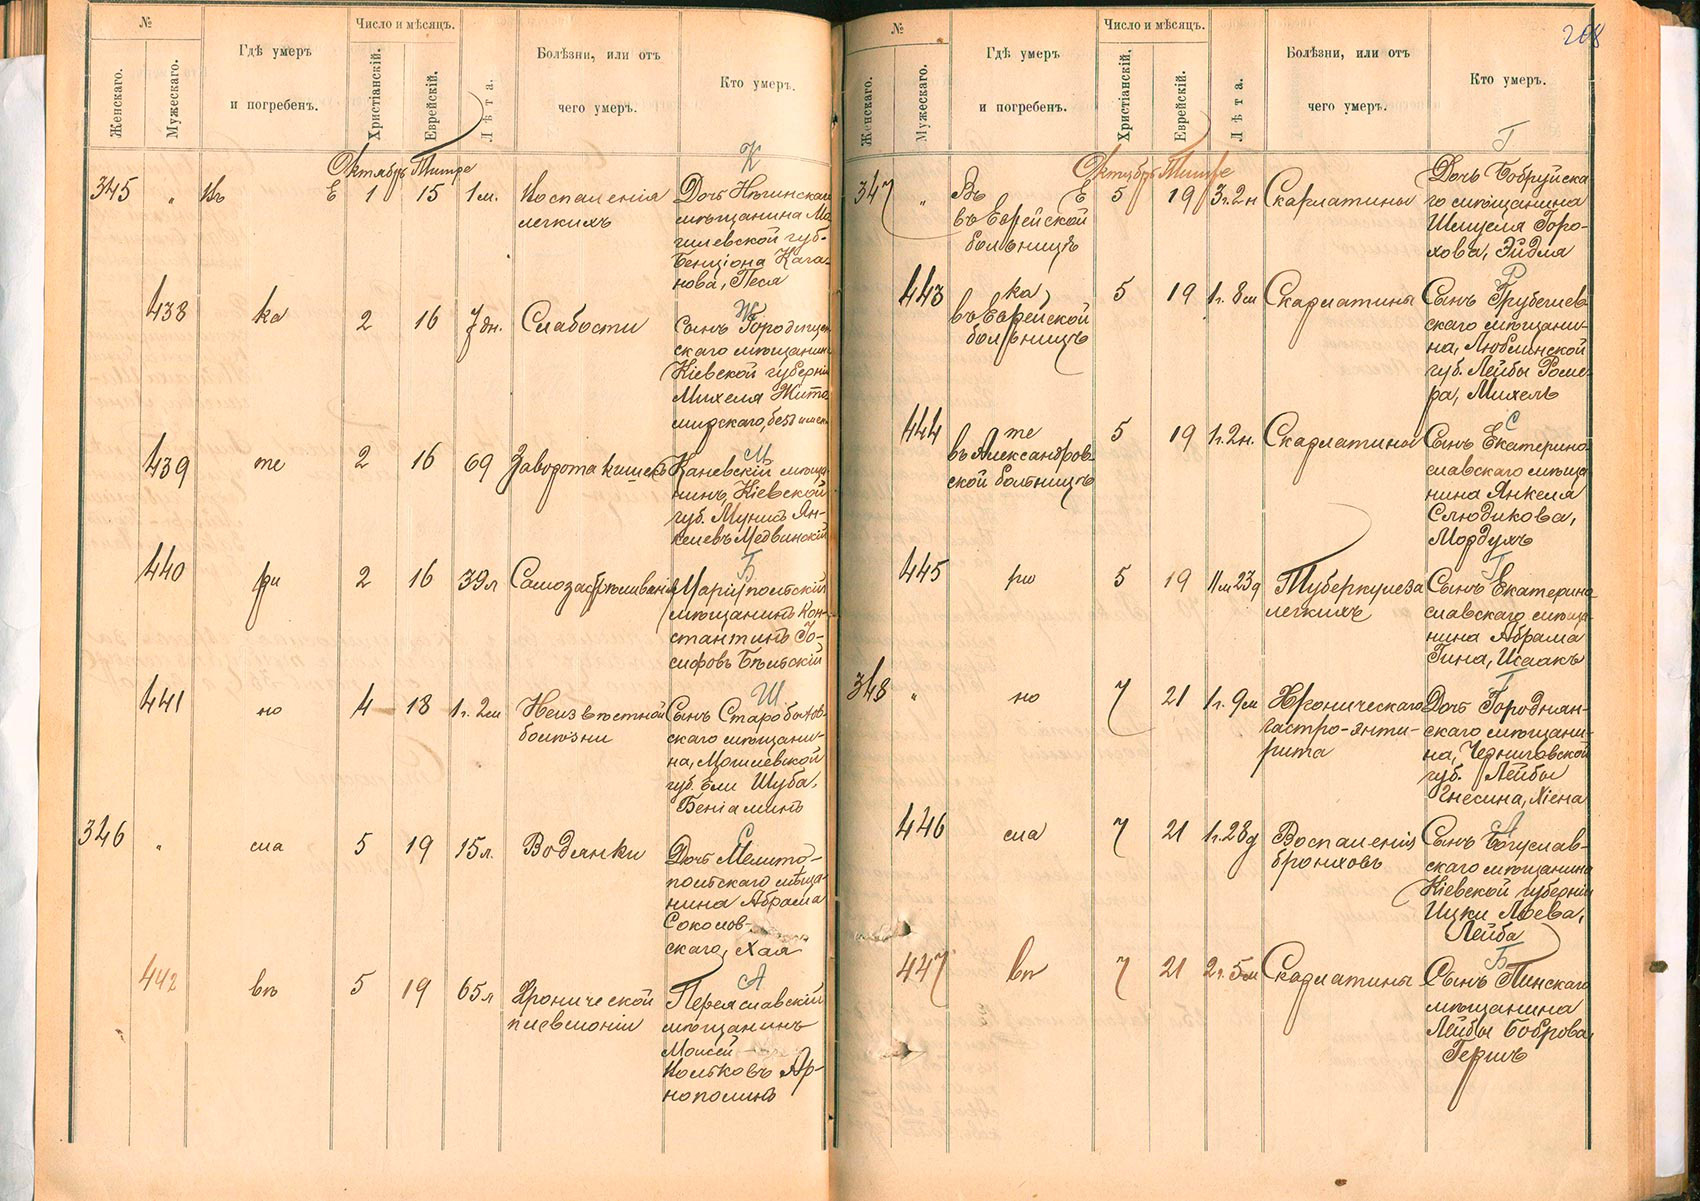 №
Число и мѣсяцъ.
Женскаго.
Мужескаго.
Гдѣ умеръ
и погребенъ.
Христіанскій.
Еврейскій.
Лѣта.
Болѣзни, или отъ
чего умеръ.
Кто умеръ.
К
Октябрь Тишре
345 „ Въ Е 1 15 1 м. Воспаленія
легкихъ
Дочь Нѣжинскаго
мѣщанина Мо-
гилевской губ.
Бенціона Кага-
нова, Песя
Ж
438 ка 2 16 7 дн. Слабости
Сынъ Городищен
скаго мѣщанина
Кіевской губерніи
Михеля Жито
мирскаго, безъ имени
М
439 те 2 16 69 Заворота кишекъ
Каневскій мѣща
нинъ, Кіевской
губ. Мунишъ Ян-
келевъ Медвинскій
Б
440 ри 2 16 39 л Самозастрѣливанія
Маріупольскій
мѣщанинъ Кон-
стантинъ Іо-
сифовъ Бѣльскій
Ш
441 но 4 18 1 г. 2 м Неизвѣстной
болѣзни
Сынъ
скаго мѣщани-
на, Могилевской
губ. Ели Шуба,
Беніаминъ
346 „ сла 5 19 15 л. Водянки
Дочь Мелито-
польскаго мѣща-
нина Абрама
Соколов-
скаго, Хая
А
442 въ 5 19 65 л Хронической
пневмоніи
Переяславскій
мѣщанинъ
Моисей
Вольковъ Яр-
нополинъ
208
№
Число и мѣсяцъ.
Женскаго.
Мужескаго.
Гдѣ умеръ
и погребенъ.
Христіанскій.
Еврейскій.
Лѣта.
Болѣзни, или отъ
чего умеръ.
Кто умеръ.
Г
Октябрь Тишре
347 „ Въ Е 5 19 3 г. 2 н Скарлатины
въ Еврейской
больницѣ
Дочь Бобруйска
го мѣщанина
Шмуеля Горо-
хова, Эйдля
Р
443 ка 5 19 1 г. 8 м Скарлатины
въ Еврейской
больницѣ
Сынъ Грубешев
скаго мѣщани-
на, Люблинской
губ. Лейбы Роме-
ра, Михель
С
444 те 5 19 1 г. 2 н. Скарлатина
въ Александров-
ской больницѣ
Сынъ Екатерино
славскаго мѣща
нина Янкеля
Слюдикова,
Мордухъ
Г
445 ри 5 19 11 м 23 д Туберкулеза
легкихъ
Сынъ Екатерино
славскаго мѣща
нина Абрама
Гина, Исаакъ
Г
348 „ но 7 21 1 г. 9 м Хроническаго
гастро-энти-
рита
Дочь Городнян-
скаго мѣщани-
на, Черниговской
губ. Лейбы
Гнесина, Хіена
Л
446 сла 7 21 1 г. 28 д Воспаленія
бронховъ
Сынъ Богуслав-
скаго мѣщанина
Кіевской губерніи
Ицки Лоева,
Лейба
Б
447 въ 7 21 2 г. 5 м Скарлатины
Сынъ Пинскаго
мѣщанина
Лейбы Боброва,
Гершъ